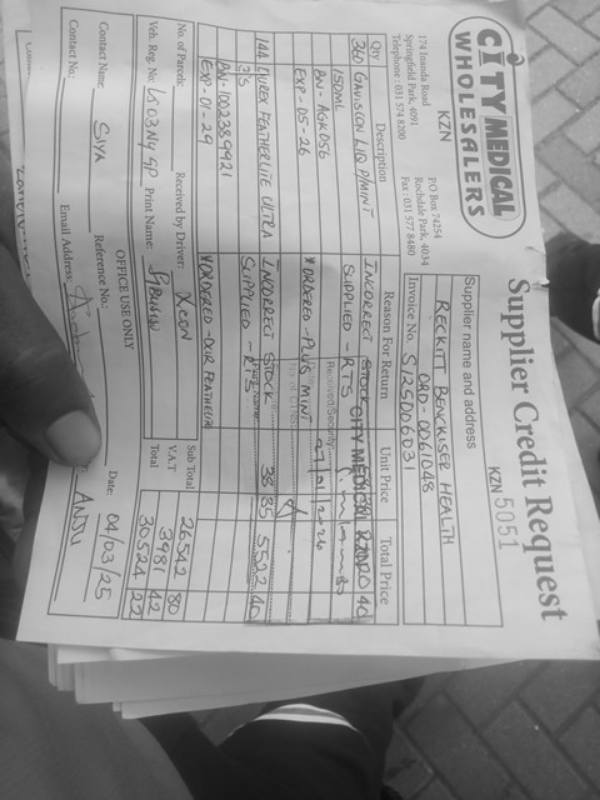 CITY MEDICAL
WHOLESALERS
KZN
174 Inanda Road
Springfield Park, 4091
Telephone : 031 574 8200
P.O Box 74254
Rochdale Park, 4034
Fax : 031 577 8480
Supplier Credit Request
KZN 5051
Supplier name and address
RECKITT BENCKISER HEALTH
ORD-0061048
Invoice No. S125D06031
Qty Description Reason For Return Unit Price Total Price
360 GAVISCON LIQ P/MINT INCORRECT STOCK
150ML SUPPLIED - RTS
BN - AGK056
EXP - 05 - 26 *ORDERED - PLUS MINT
144 DUREX FEATHERLITE ULTRA INCORRECT STOCK 38 35 5522 40
12'S SUPPLIED - RTS
BN - 1002389921
EXP - 01 - 29 *ORDERED - DUR FEATHELITE
CITY MEDICAL
Received/Security
No of C
No. of Parcels: Received by Driver: XCON
Veh. Reg. No: LS03NY GP Print Name:
Sub Total 26542 80
V.A.T 3981 42
Total 30524 22
OFFICE USE ONLY
Contact Name: SIYA Reference No.: Date: 04/03/25
Contact No.: Email Address: ANJU